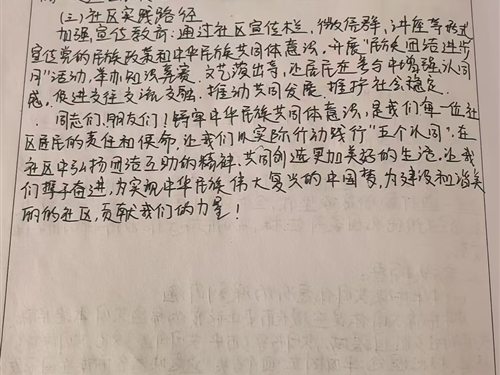 (二)社区实践路径
加强宣传教育:通过社区宣传栏、微信群、讲座等形式
宣传党的民族政策和中华民族共同体意识,开展"民族团结进步
月"活动,举办知识竞赛、文艺演出等,让居民在参与中增强认同
感,促进交往交流交融.推动共同发展.维护社会稳定.
同志们!朋友们!铸牢中华民族共同体意识,是我们每一位社
区居民的责任和使命,让我们以实际行动践行"五个认同",在
社区中弘扬团结互助的精神,共同创造更加美好的生活,让我
们携手奋进,为实现中华民族伟大复兴的中国梦,为建设和谐美
的的社区,贡献我们的力量!